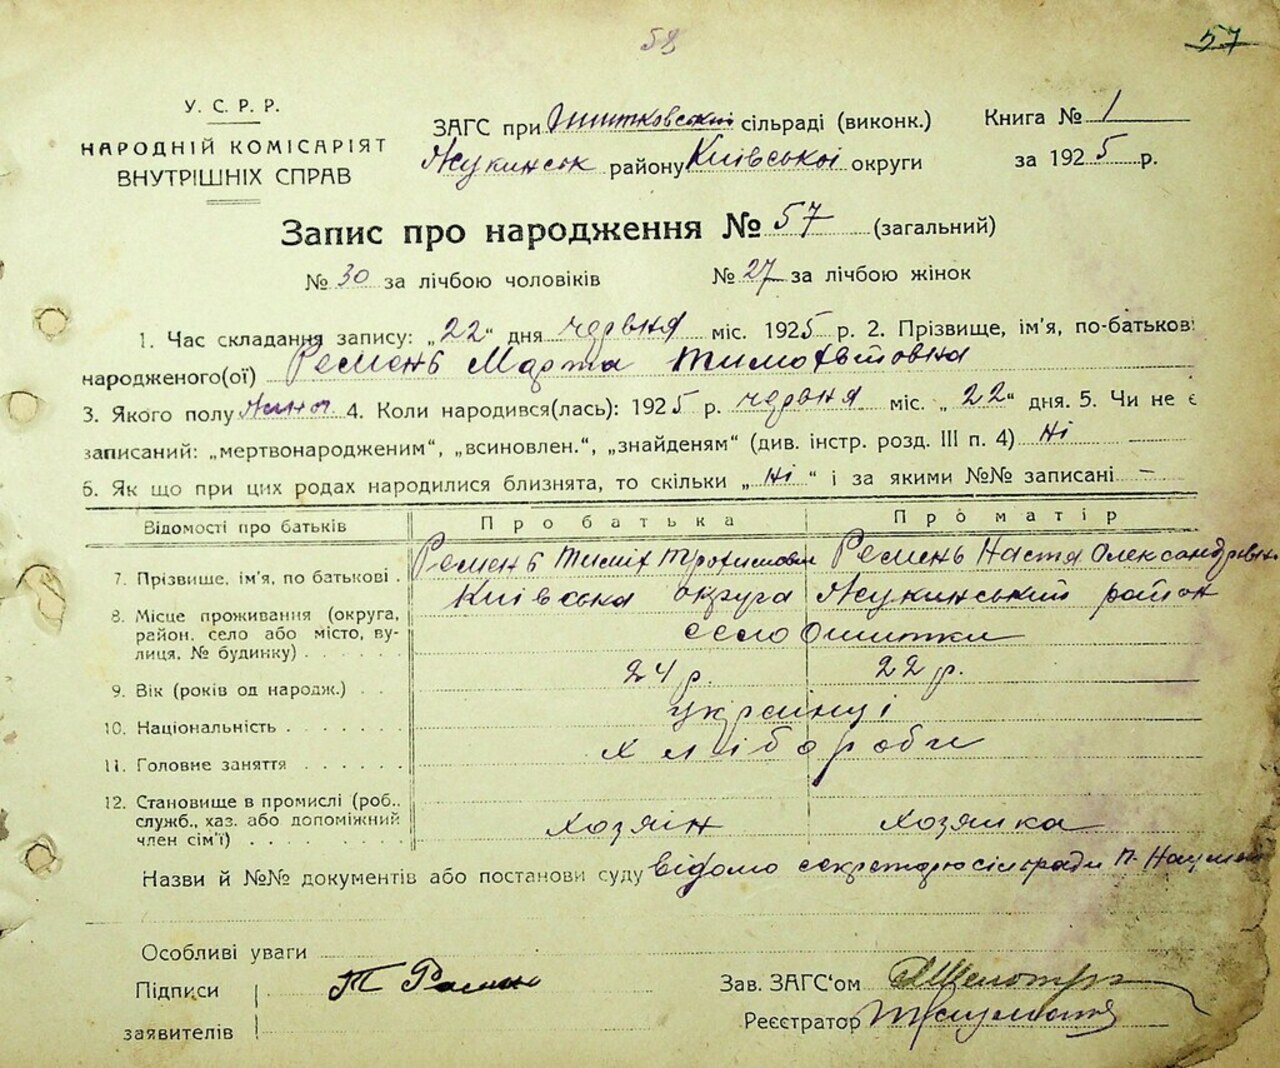 58
57
У. С. Р. Р.
НАРОДНІЙ КОМІСАРІЯТ
ВНУТРІШНІХ СПРАВ
ЗАГС при Ошитковській сільраді (виконк.)
Жукинськ району Київської округи
Книга № 1
за 1925 р.
Запис про народження № 57 (загальний)
№ 30 за лічбою чоловіків № 27 за лічбою жінок
1. Час складання запису: „22“ дня червня міс. 1925 р. 2. Прізвище, ім'я, по-батькові
народженого(ої) Ремень Марта Тимофѣтовна
3. Якого полу жіноч 4. Коли народився(лась): 1925 р. червня міс. „22“ дня. 5. Чи не є
записаний: „мертвонародженим“, „всиновлен.“, „знайденям“ (див. інстр. розд. III п. 4) ні
6. Як що при цих родах народилися близнята, то скільки „ні“ і за якими №№ записані —
Відомості про батьків Про батька Про матір
7. Прізвище, ім'я, по батькові . Ремень Тиміх Трохимович Ремень Настя Олександрівна
8. Місце проживання (округа, Київська округа Жукинський район
район, село або місто, ву-
лиця, № будинку) . . . . . село Ошитки
9. Вік (років од народж.) . . 24 р. 22 р.
10. Національність . . . . . . українці
11. Головне заняття . . . . . . хлібороби
12. Становище в промислі (роб.,
служб., хаз. або допоміжний
член сім'ї) . . . . . . . . Хозяїн Хозяйка
Назви й №№ документів або постанови суду відомо секретарю сільради
Особливі уваги
Підписи
заявителів
Т Ремень
Зав. ЗАГС'ом
Реєстратор